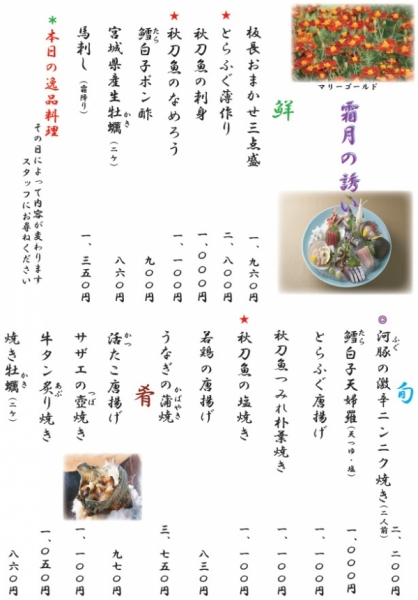 マリーゴールド
霜月の誘い
鮮
板長おまかせ三点盛 一、九六〇円
★とらふぐ薄作り 二、八〇〇円
秋刀魚の刺身 一、〇〇〇円
★秋刀魚のなめろう 一、一〇〇円
鱈白子ポン酢 九〇〇円
たら
宮城県産生牡蠣(二ケ) 八六〇円
かき
馬刺し(霜降り) 一、三五〇円
*本日の逸品料理
その日によって内容が変わります
スタッフにお尋ねください
旬
◎河豚の激辛ニンニク焼き(二人前) 二、二〇〇円
ふぐ
鱈白子天婦羅(天つゆ・塩) 一、〇〇〇円
たら
とらふぐ唐揚げ 一、一〇〇円
秋刀魚つみれ朴葉焼き 一、一〇〇円
★秋刀魚の塩焼き 一、一〇〇円
若鶏の唐揚げ 八三〇円
うなぎの蒲焼 三、七五〇円
かばやき
肴
活たこ唐揚げ 九七〇円
かつ
サザエの壺焼き 一、一〇〇円
つぼ
牛タン炙り焼き 一、〇五〇円
あぶ
焼き牡蠣(二ケ) 八六〇円
かき